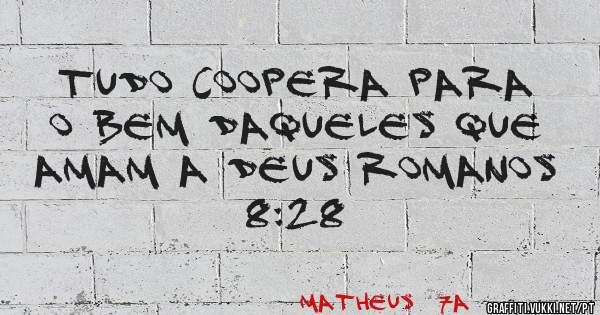 TUDO COOPERA PARA
O BEM DAQUELES QUE
AMAM A DEUS ROMANOS
8:28
MATHEUS 7A
GRAFFITI.VUKKI.NET/PT